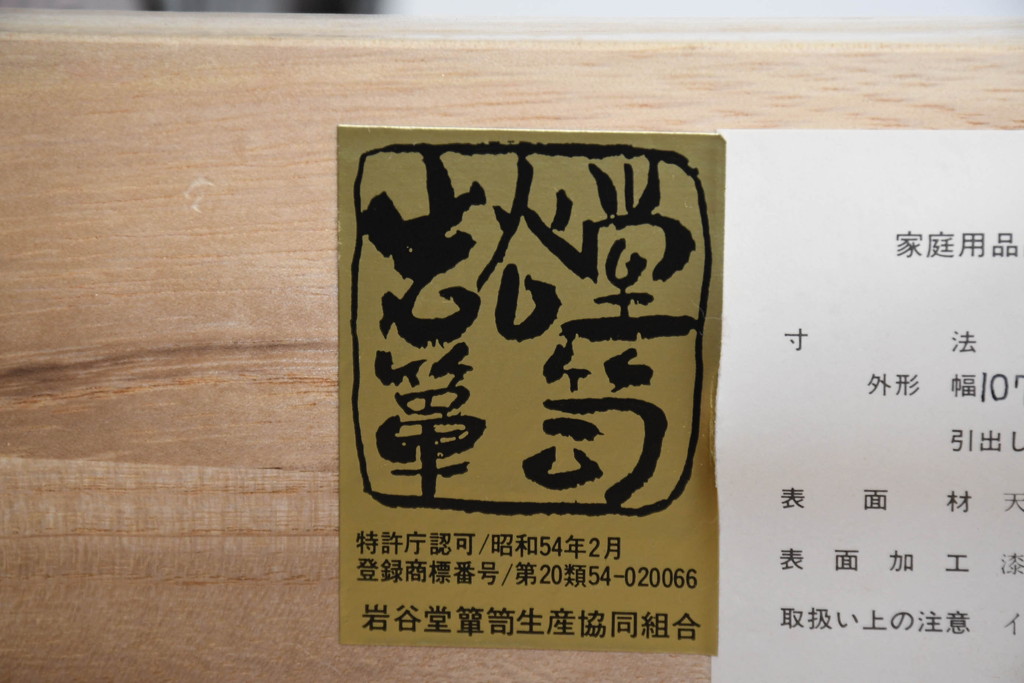 岩谷堂
簞笥
特許庁認可/昭和54年2月
登録商標番号/第20類54-020066
岩谷堂簞笥生産協同組合
家庭用品
寸法
外形 幅107
引出し
表面材 天
表面加工 漆
取扱い上の注意 イ